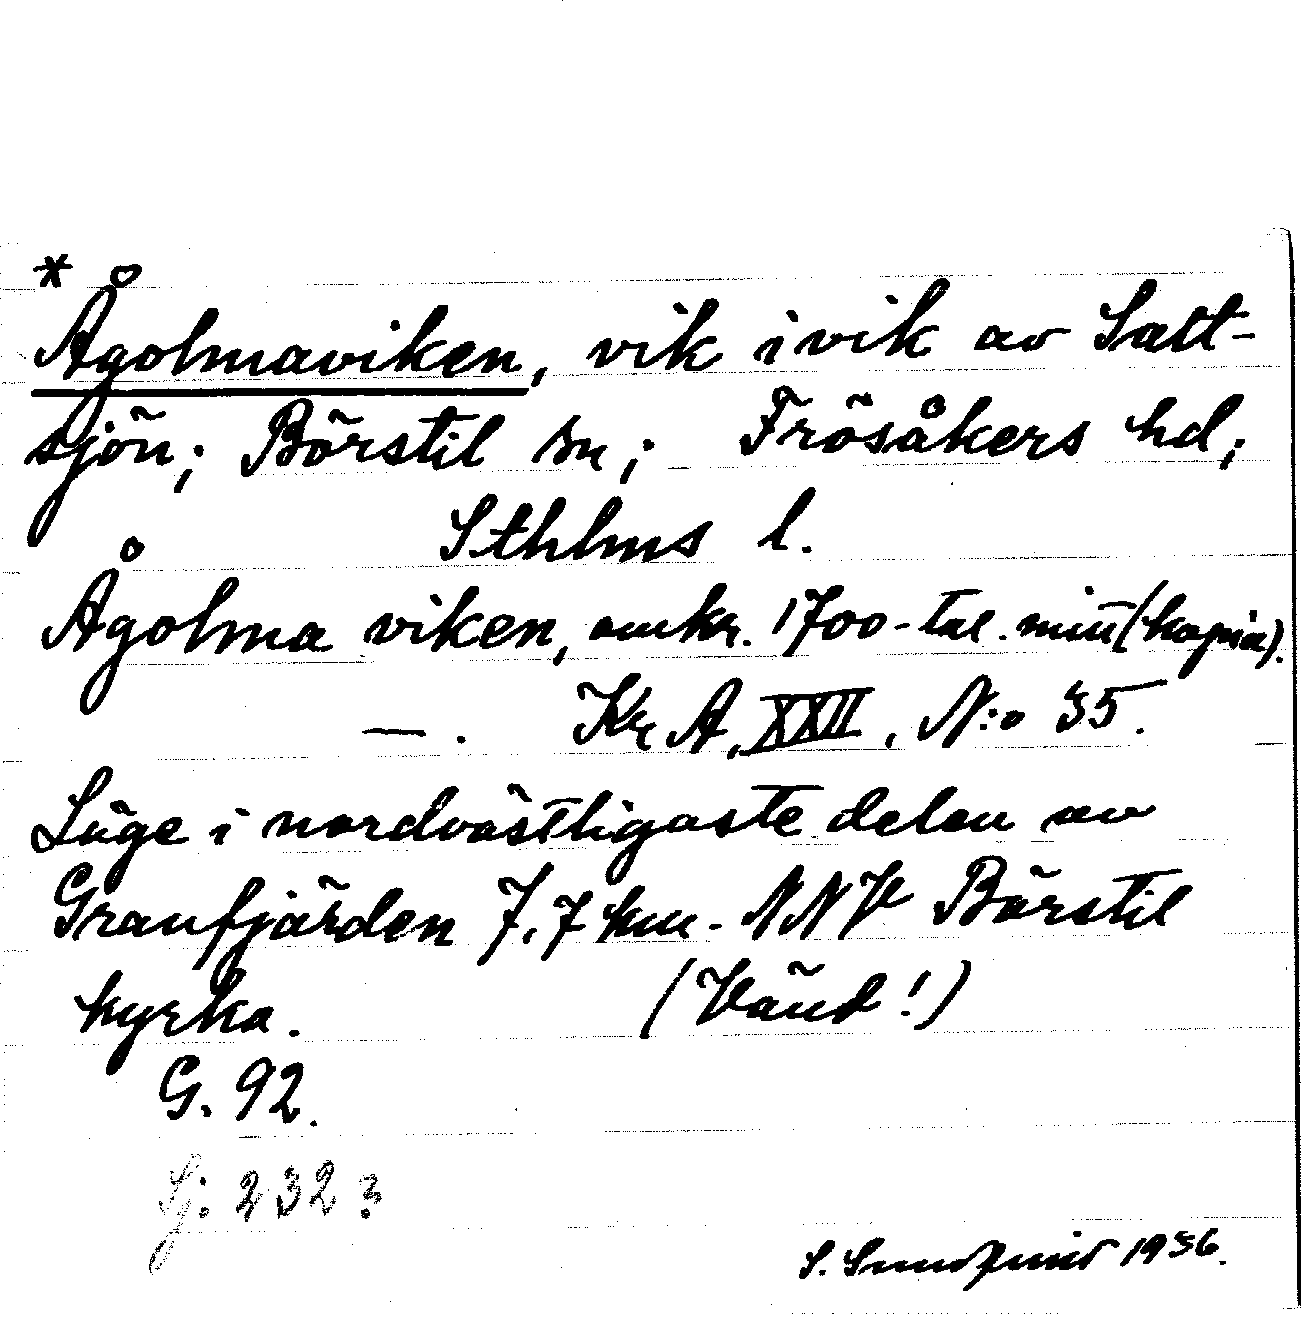 *
Ågolmaviken, vik i vik av Salt-
sjön; Börstil sn; Frösåkers hd;
Sthlms l.
Ågolma viken, omkr. 1700-tal. mitt (kopia).
— . Kr A, XXII, N:o 35.
Läge i nordvästligaste delen av
Granfjärden 7,7 km. NNV Börstil
kyrka. (Vänd!)
G. 92.
Sj. 232 ?
S. Sundqvist 1936.